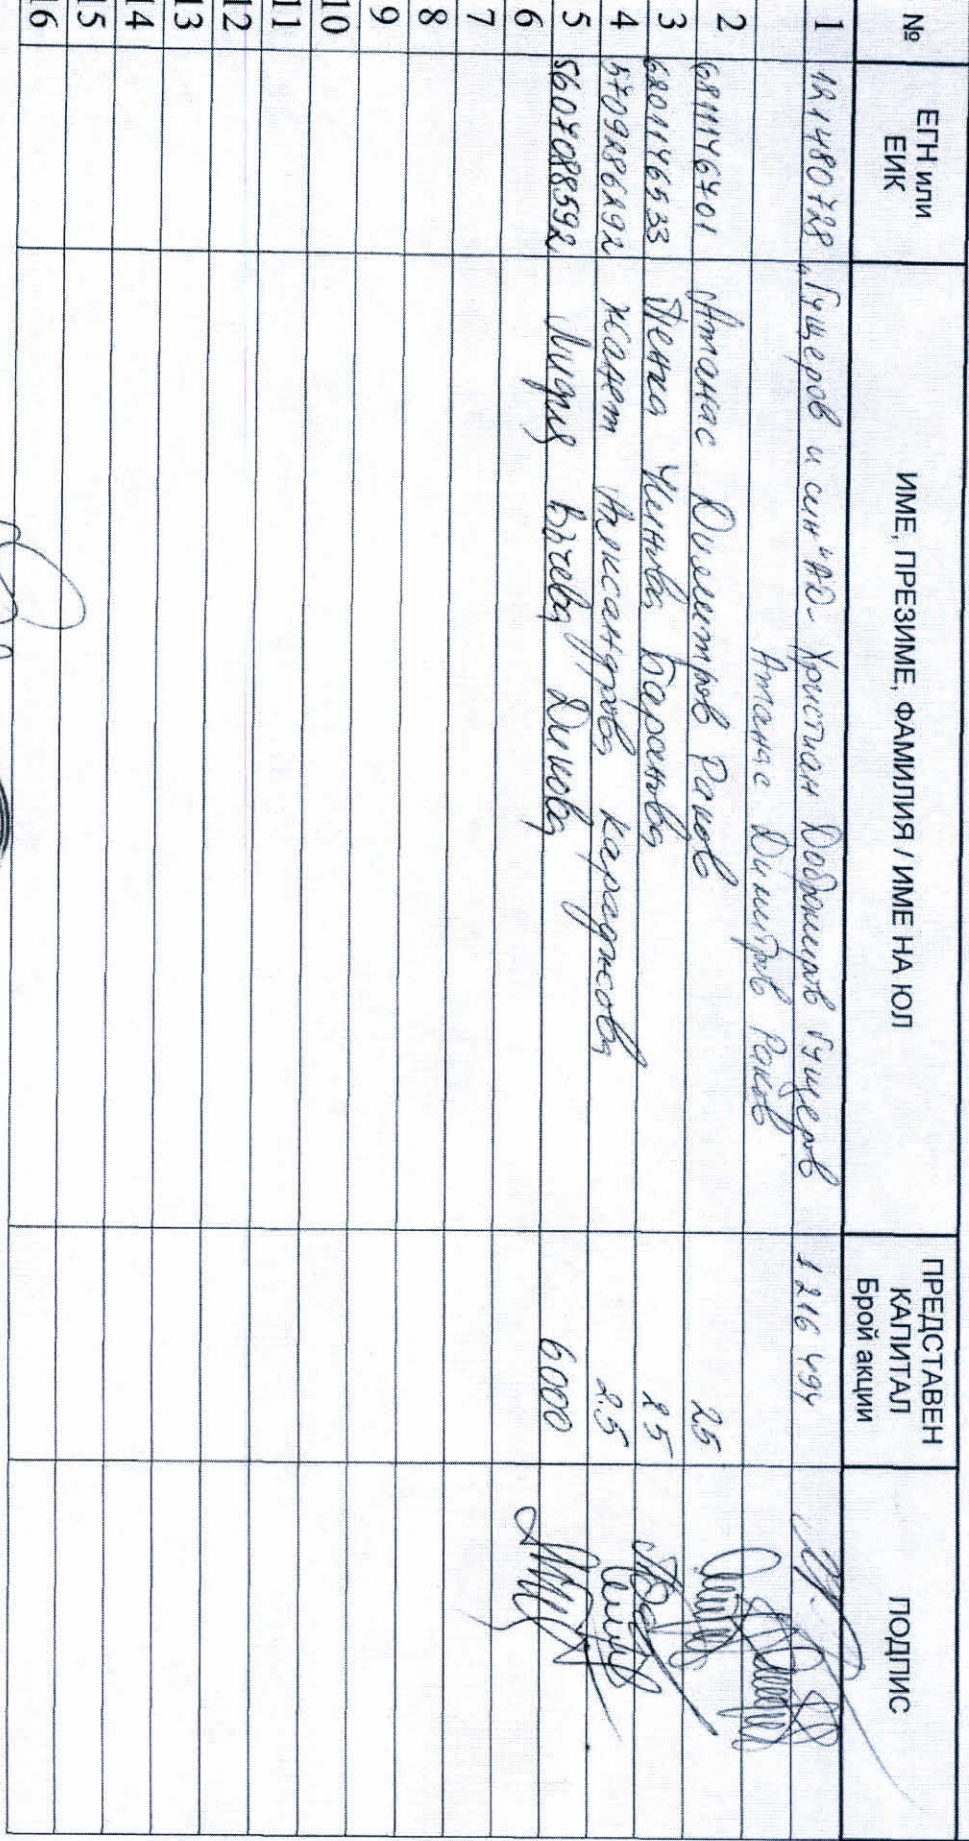 № ЕГН или ЕИК ИМЕ, ПРЕЗИМЕ, ФАМИЛИЯ / ИМЕ НА ЮЛ ПРЕДСТАВЕН КАПИТАЛ Брой акции ПОДПИС
1 121480728 "Гущеров и син" АД- Християн Добромиров Гущеров 1216494
Атанас Димитров Раков
2 6811146701 Атанас Димитров Раков 25
3 6201146533 Пенка Чинкова Баракова 25
4 5709286292 Жанет Александрова Караджова 25
5 5607088592 Лидия Вълчева Дикова 6000
6
7
8
9
10
11
12
13
14
15
16